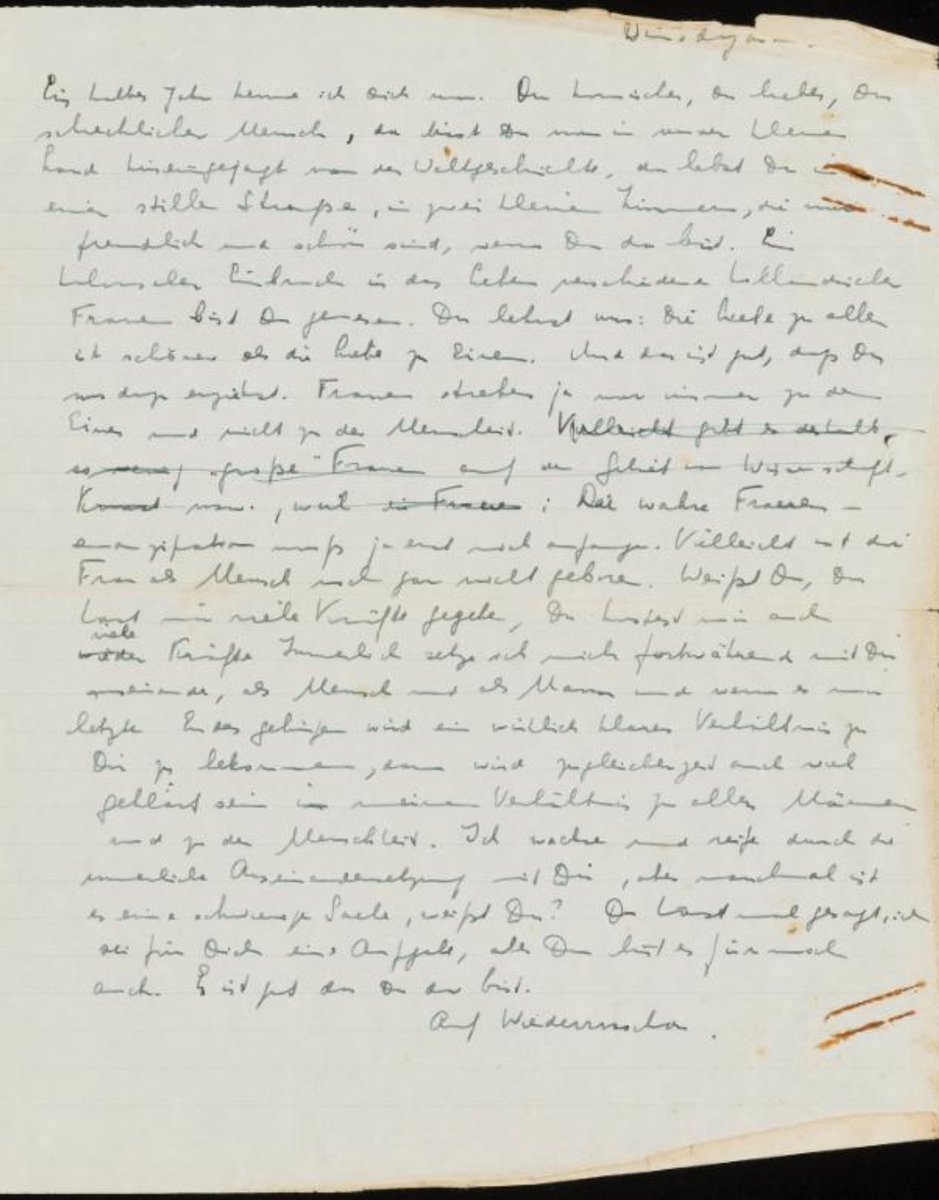 Ein halbes Jahr kenne ich dich nun. Du komischer, Du lieber, Du
schrecklicher Mensch, da bist Du nun in unser kleines
Land hineingejagt von der Weltgeschichte, da lebst Du in
einer stillen Straße, in zwei kleinen Zimmern, die nur
freundlich und schön sind, wenn Du da bist. Ein
Einbruch in das Leben verschiedener holländischer
Frauen bist Du gewesen. Du lehrst uns: die Liebe zu allen
ist schöner als die Liebe zu Einem. Und das ist gut, daß Du
uns dazu erziehst. Frauen streben ja nur immer zu dem
Einen und nicht zu der Menschheit. Vielleicht gibt es deshalb
so wenig „große" Frauen auf dem Gebiet von Wissenschaft,
Kunst usw., weil die Frauen : Die wahre Frauen-
emanzipation muß ja erst noch anfangen. Vielleicht ist die
Frau als Mensch noch gar nicht geboren. Weißt Du, Du
hast mir viele Kräfte gegeben, Du kostest mich auch
viele
Kräfte Innerlich setze ich mich fortwährend mit Dir
auseinander, als Mensch und als Mann und wenn es mir
letzten Endes gelingen wird ein wirklich klares Verhältnis zu
Dir zu bekommen, dann wird zu gleicher Zeit auch viel
geklärt sein in meinem Verhältnis zu allen Männern
und zu der Menschheit. Ich wachse und reife durch die
innerliche Auseinandersetzung mit Dir, aber manchmal ist
es eine schwierige Sache, weißt Du? Du hast mal gesagt, ich
sei für Dich eine Aufgabe, aber Du bist es für mich
auch. Es ist gut das Du da bist.
Auf Wiedersehen.